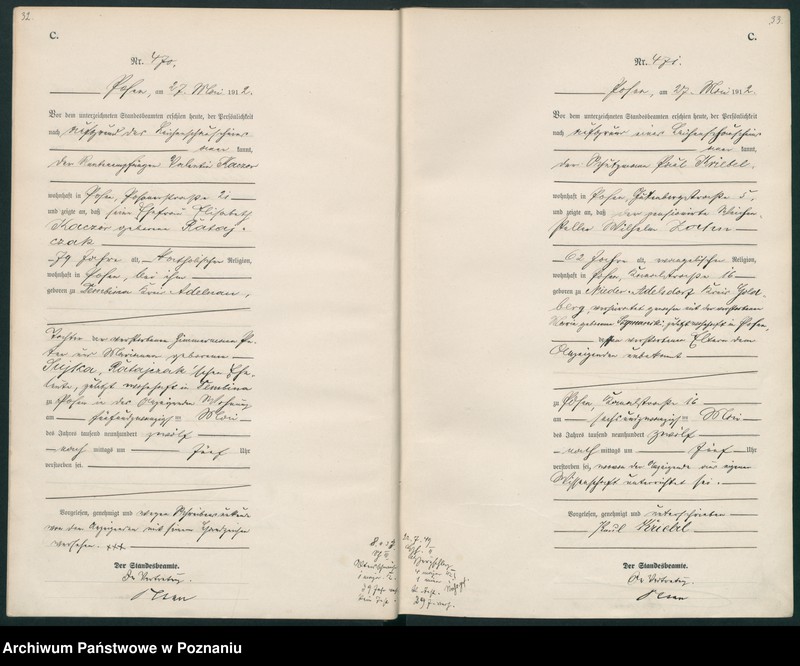 32.
C.
Nr. 470.
Posen, am 27. Mai 1912.
Vor dem unterzeichneten Standesbeamten erschien heute, der Persönlichkeit
nach auf Grund des Leichenschauscheins
kannt,
der Rentenempfänger Valentin Kaczor
wohnhaft in Posen,
und zeigte an, daß seine Ehefrau Elisabeth
Kaczor geborene Rataj-
czak
79 Jahre alt, katholischer Religion,
wohnhaft in Posen, bei ihm
geboren zu Dembina Kreis Adelnau,
Tochter der verstorbenen Zimmermann Pe-
ter und Marianna geborenen
Ratajczak'schen Ehe-
leute, zuletzt wohnhaft in Dembina
zu Posen in des Anzeigenden Wohnung
am Mai
des Jahres tausend neunhundert zwölf
nach mittags um fünf Uhr
verstorben sei.
Vorgelesen, genehmigt und wegen Schreibensunkunde
von dem Anzeigenden mit seinem Handzeichen
versehen. +++
Der Standesbeamte.
In Vertretung.
33.
C.
Nr. 471.
Posen, am 27. Mai 1912.
Vor dem unterzeichneten Standesbeamten erschien heute, der Persönlichkeit
nach auf Grund eines Leichenschauscheins
kannt,
der Schutzmann Paul Kriebel
wohnhaft in Posen, Gutenbergstraße 5,
und zeigte an, daß der pensionierte Weichen-
steller Wilhelm
62 Jahre alt, evangelischer Religion,
wohnhaft in Posen, Kanalstraße 16
geboren zu Nieder-Adelsdorf Kreis Gold-
berg, verheiratet gewesen mit der verstorbenen
Maria geborene zuletzt wohnhaft in Posen,
dessen verstorbenen Eltern dem
Anzeigenden unbekannt
zu Posen, Kanalstraße 16
am sechsundzwanzigsten Mai
des Jahres tausend neunhundert zwölf
nach mittags um fünf Uhr
verstorben sei, wovon der Anzeigende aus eigener
Wissenschaft unterrichtet sei.
Vorgelesen, genehmigt und unterschrieben
Paul Kriebel
Der Standesbeamte.
In Vertretung.
Archiwum Państwowe w Poznaniu